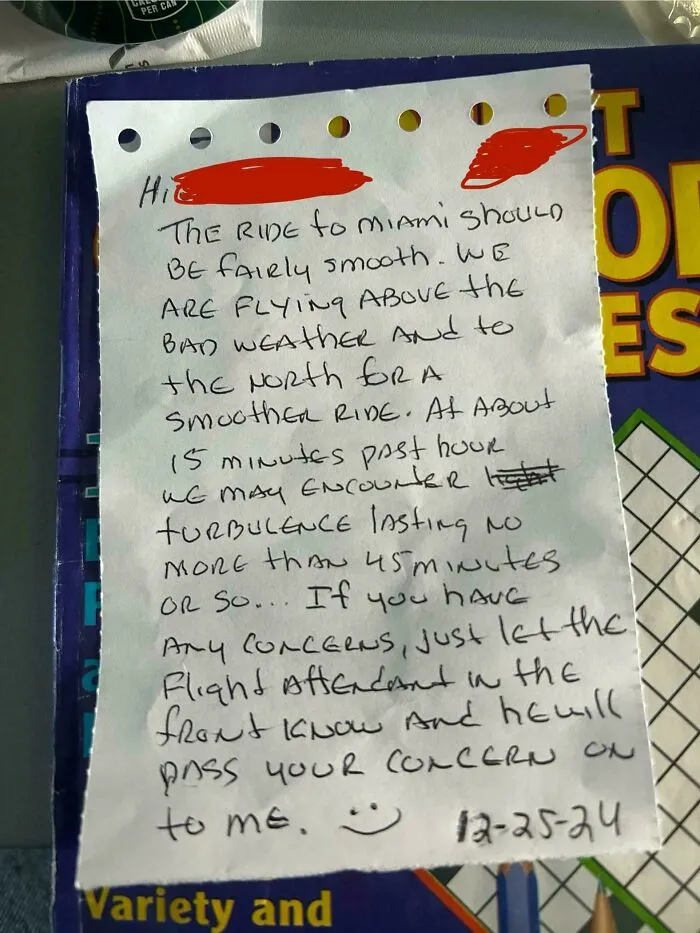 PER CAN
T
Hi
THE RIDE to MIAMI SHOULD
BE FAIRLY SMOOTH. WE
ARE FLYING ABOVE the
BAD WEATHER AND to
the NORTH FOR A
SMOOTHER RIDE. At ABOUT
15 MINUTES PAST HOUR
WE MAY ENCOUNTER
TURBULENCE lASTING NO
MORE thAN 45 MINUTES
OR SO... If you HAVE
ANY CONCERNS, JUST LET the
FLIGHT AttENDANT IN the
FRONT KNOW AND HE WILL
PASS YOUR CONCERN ON
to ME.
12-25-24
ES
Variety and